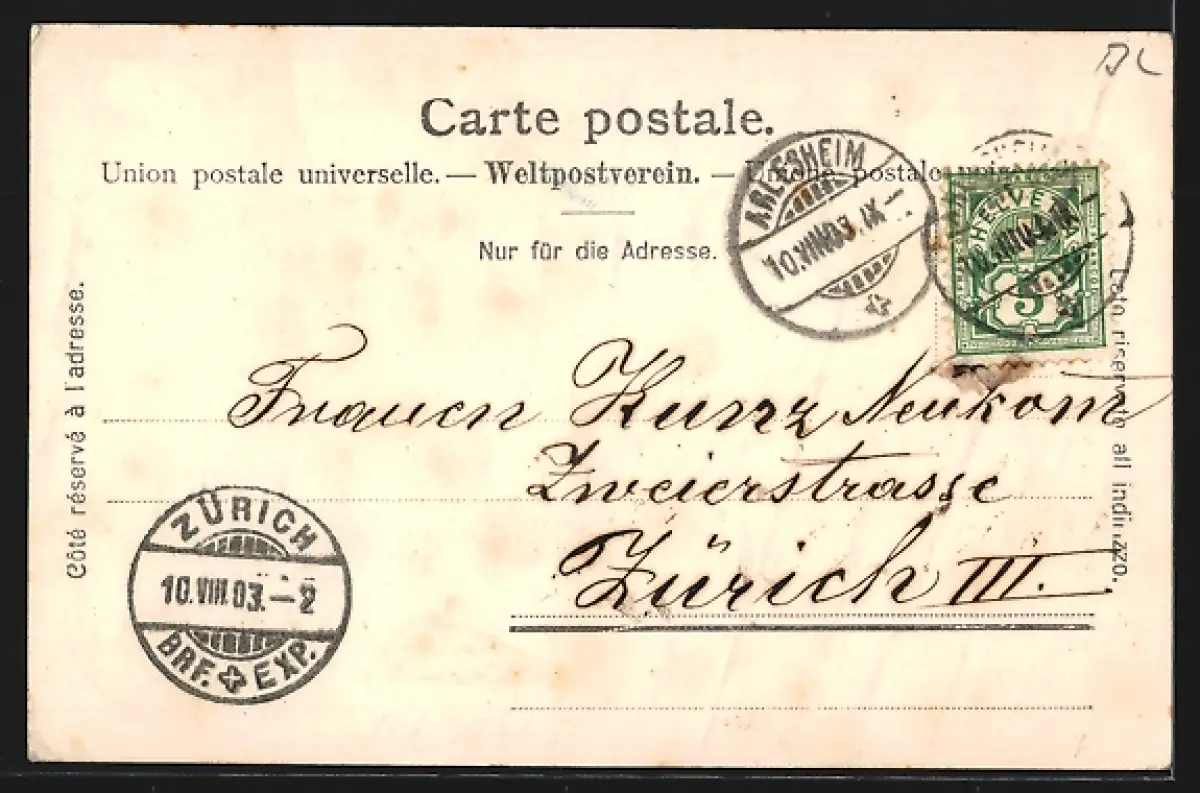 Carte postale.
Union postale universelle. — Weltpostverein. — Unione postale
Nur für die Adresse.
ARLESHEIM
10.VIII.03.IX—
HELVETIA
5
Côté réservé à l'adresse.
Lato riservato all'indirizzo.
Frauen Kunz Neukom
Zweierstrasse
Zürich III.
ZÜRICH
10.VIII.03.—2
BRF. EXP.